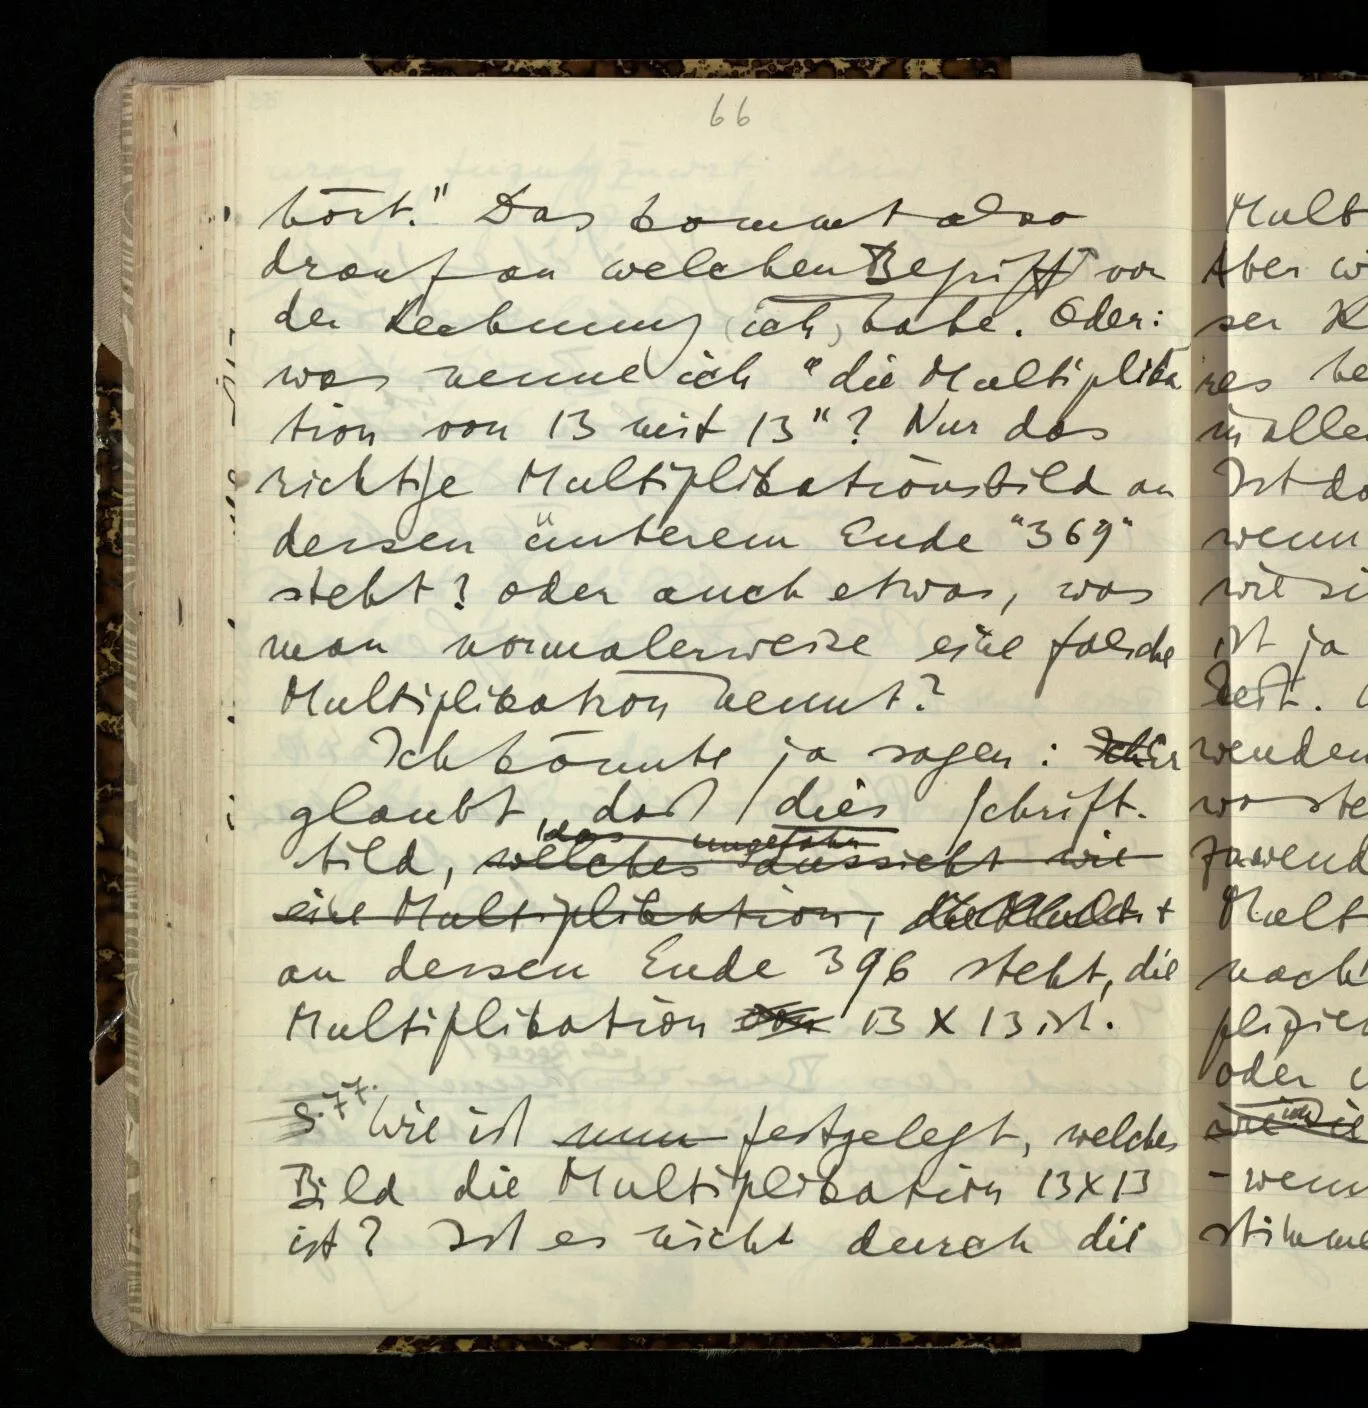 66
hört." Das kommt also
drauf an welchen Begriff von
der Rechnung ich habe. Oder:
was nenne ich "die Multiplika
tion von 13 mit 13"? Nur das
richtige Multiplikationsbild an
dessen unterem Ende "369"
steht? oder auch etwas, was
man normalerweise eine falsche
Multiplikation nennt?
Ich könnte ja sagen: Ich Er
glaubt, daß dies Schrift-
das ungefähr
bild, welches aussieht wie
eine Multiplikation,
an dessen Ende 396 steht, die
Multiplikation von 13 X 13 ist.
S. 77. Wie ist nun festgelegt, welches
Bild die Multiplikation 13X13
ist? Ist es nicht durch die
Mult
Aber wi
ser K
res be
in alle
Ist da
wenn
wie si
ist ja
wenden
wo ste
zuwend
Mult
nach
plizier
oder
wie
- wenn
stimme